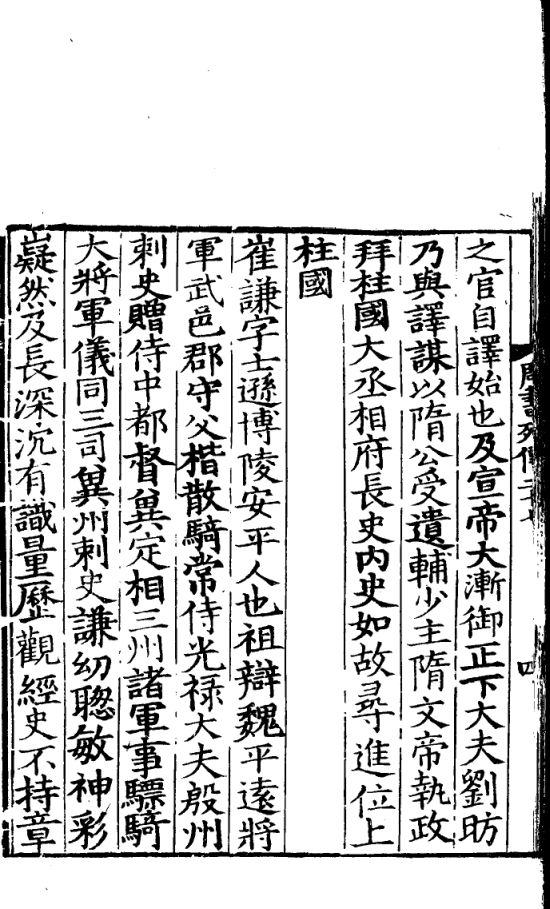 周書列傳二十七
四
之官自譯始也及宣帝大漸御正下大夫劉昉
乃與譯謀以隋公受遺輔少主隋文帝執政
拜柱國大丞相府長史內史如故尋進位上
柱國
崔謙字士遜博陵安平人也祖辯魏平遠將
軍武邑郡守父楷散騎常侍光祿大夫殷州
刺史贈侍中都督兾定相三州諸軍事驃騎
大將軍儀同三司兾州刺史謙幼聰敏神彩
嶷然及長深沉有識量歷觀經史不持章